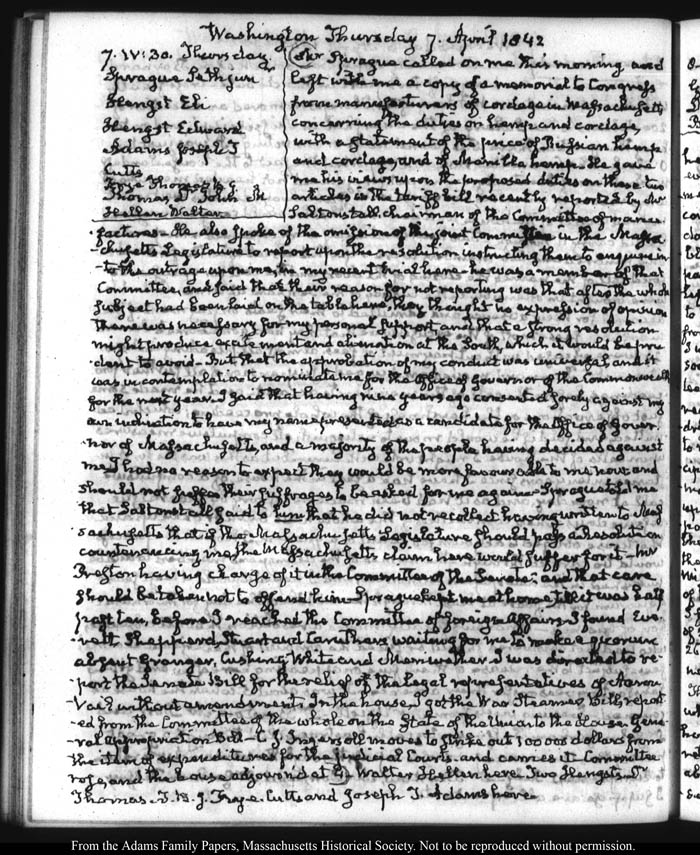 Washington Thursday 7. April 1842
7. IV:30. Thursday
Sprague Seth jun.r
Hengst Eli
Hengst Edward
Adams Joseph T
Cutts
Frye Thomas B. J.
Thomas D. John M
Hellen Walter
Mr Sprague called on me this morning, and
left with me a copy of a memorial to Congress
from manufacturers of cordage in Massachusetts
concerning the duties on hemp and cordage,
with a statement of the price of Russian hemp
and cordage, and of Manilla hemp. He gave
me his views upon the proposed duties on those two
articles in the tariff bill recently reported by Mr
Saltonstall, chairman of the Committee of manu-
factures. He also spoke of the omission of the joint Committee in the Massa-
chusetts Legislature to report upon the resolution instructing them to enquire in-
to the outrage upon me, in my recent trial here. he was a member of that
Committee, and said that their reason for not reporting was that after the whole
subject had been laid on the table here, they thought no expression of opinion
there was necessary for my personal support, and that a strong resolution
might produce excitement and alienation at the South, which it would be pru-
dent to avoid. But that the approbation of my conduct was universal, and it
was in contemplation to nominate me for the Office of Governor of the Commonwealth
for the next year. I said that having nine years ago consented sorely against my
own inclination to have my name presented as a candidate for the Office of Gover-
nor of Massachusetts, and a majority of the people having decided against
me, I had no reason to expect they would be more favourable to me now and
should not suffer their suffrages to be asked for me again. Sprague told me
that Saltonstall said to him that he did not recollect having written to Mas-
sachusetts that if the Massachusetts Legislature should pass a Resolution
countenancing me, the Massachusetts claim here would suffer for it. Mr
Preston having charge of it in the Committee of the Senate; and that care
should be taken not to offend him. Sprague kept me at home, till it was half
past ten, before I reached the Committee of foreign Affairs. I found Eve-
rett Shepperd, Stuart and Caruthers waiting for me to make a quorum
absent Granger, Cushing White and Meriwether. I was directed to re-
port the Senate Bill for the relief of the legal representatives of Aaron
Vail without amendment. In the house, I got the War Steamer Bill, report-
ed from the Committee of the whole on the State of the Union to the House. Gene-
ral appropriation Bill. C. J. Ingersoll moves to strike out 100 000 dollars from
the item of expenditures for the judicial Courts. and carries it. Committee
rose, and the house adjourned at 4. Walter Hellen here. Two Hengsts. D
Thomas. T. B. J. Frye. Cutts and Joseph T. Adams here.
From the Adams Family Papers, Massachusetts Historical Society. Not to be reproduced without permission.